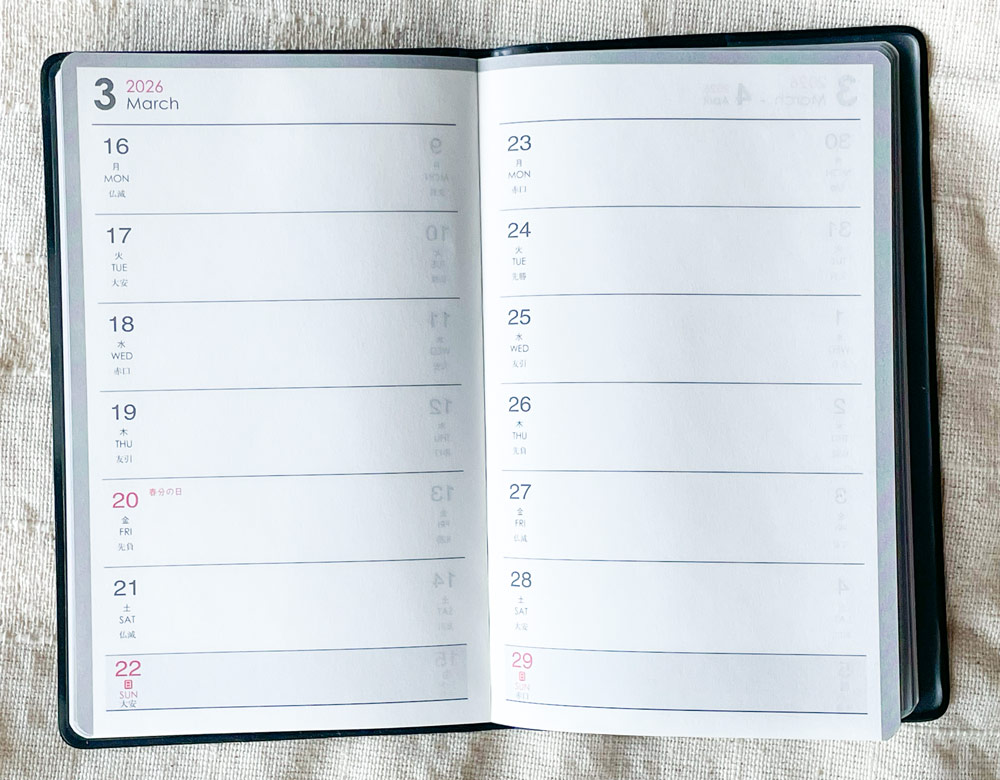 3 2026
March
16
月
MON
仏滅
17
火
TUE
大安
18
水
WED
赤口
19
木
THU
友引
20 春分の日
金
FRI
先負
21
土
SAT
仏滅
22
日
SUN
大安
23
月
MON
赤口
24
火
TUE
先勝
25
水
WED
友引
26
木
THU
先負
27
金
FRI
仏滅
28
土
SAT
大安
29
日
SUN
赤口